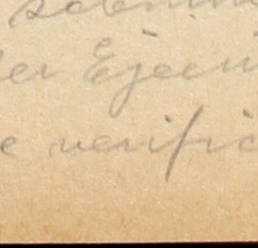 er Ejecu
e verific